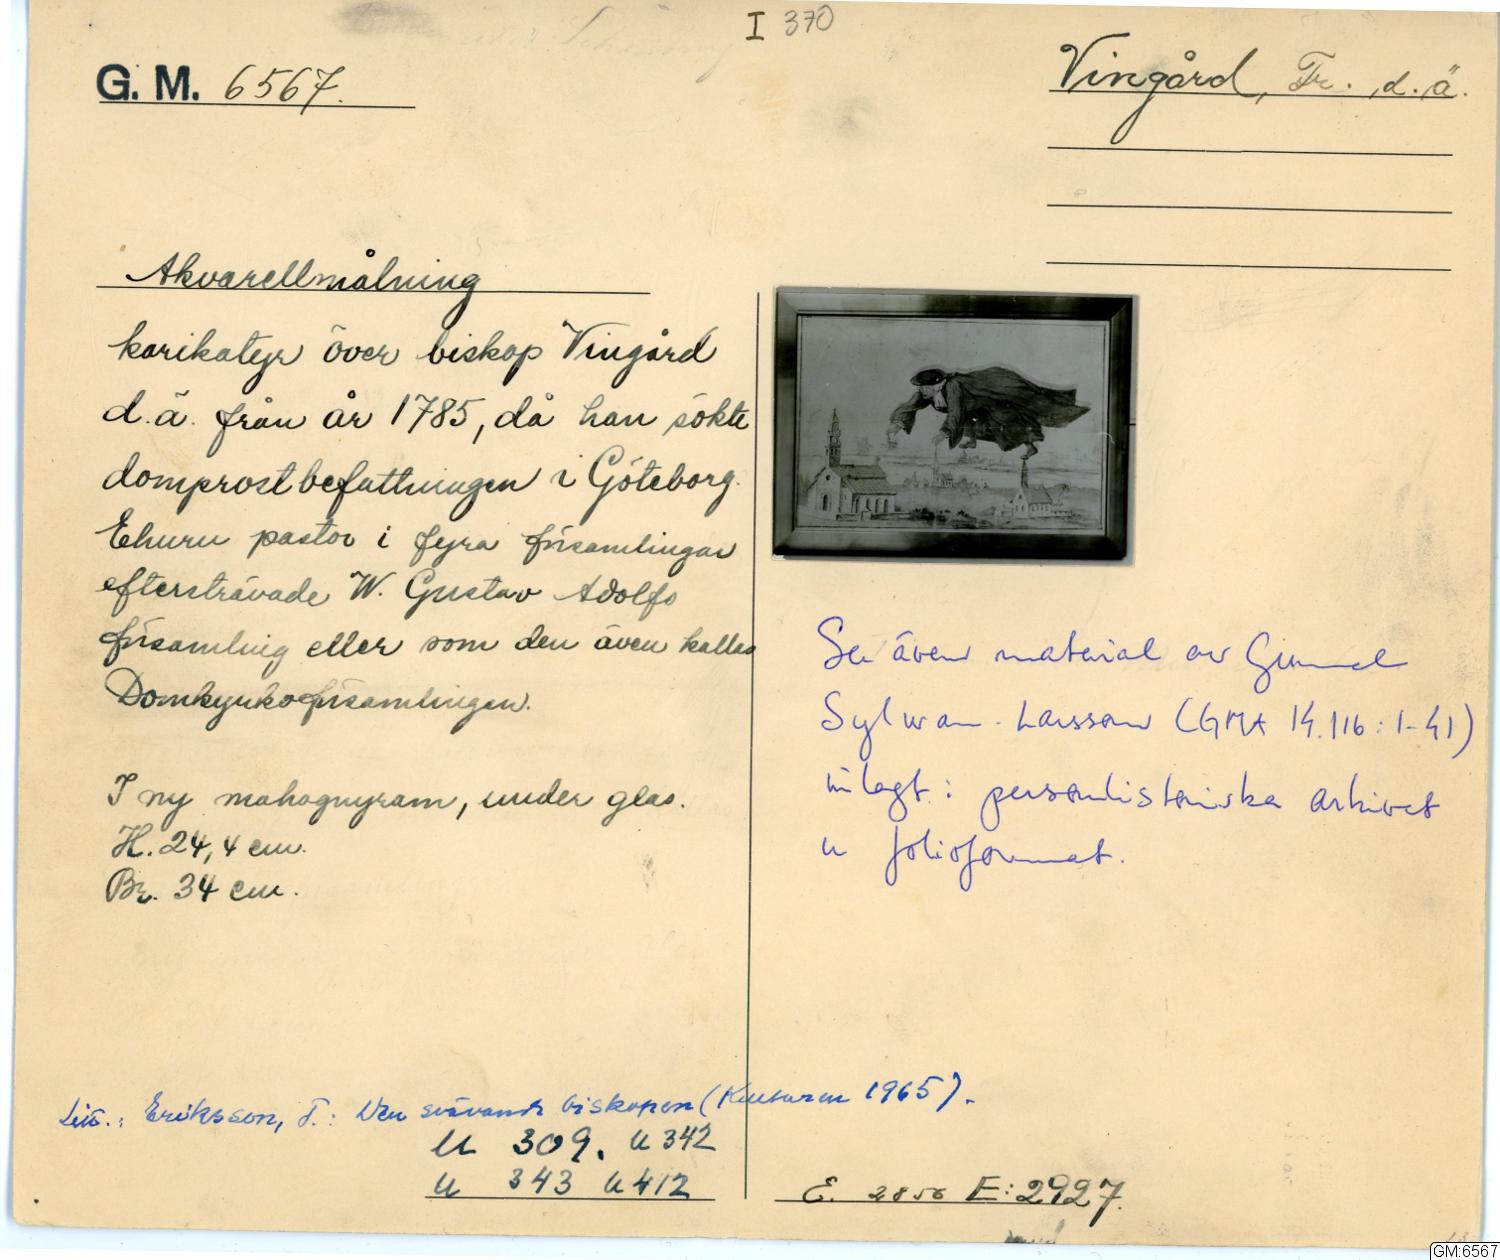 I 370
G. M. 6567.
Vingård, Fr. d. ä.
Akvarellmålning
karikatyr över biskop Vingård
d.ä. från år 1785, då han sökte
domprostbefattningen i Göteborg.
Ehuru pastor i fyra församlingar
eftersträvade W. Gustav Adolfs
församling eller som den även kallas
Domkyrkoförsamlingen.
I ny mahognyram, under glas.
H. 24,4 cm.
Br. 34 cm.
Se även material av Gunnel
Sylwan-Larsson (GMA 14.116:1-41)
inlagt i personhistoriska arkivet
u folioformat.
Litt.: Eriksson, T.: Den svävande biskopen (Kulturen 1965).
U 309. U 342
U 343 U 412
E. 2856 E:2927.
GM:6567